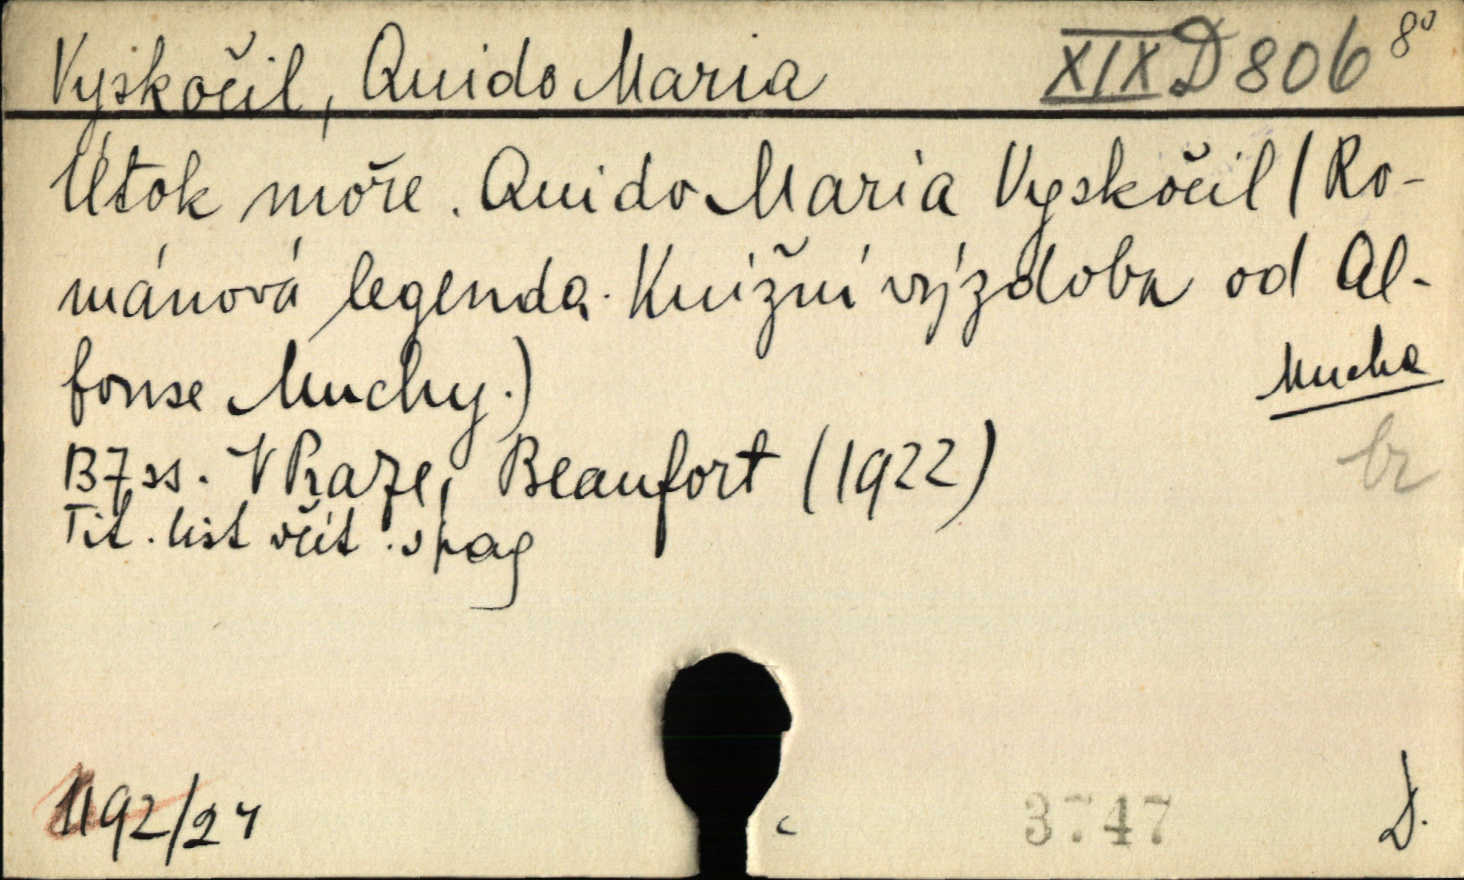 Vyskočil, Quido Maria XIX D 806 8°
Útok moře. Quido Maria Vyskočil (Ro-
mánová legenda. Knižní výzdoba od Al-
fonse Muchy.)
Mucha
137 ss. V Praze, Beaufort (1922)
br
Tit. list včít. v pag
1192/24
3747
D.